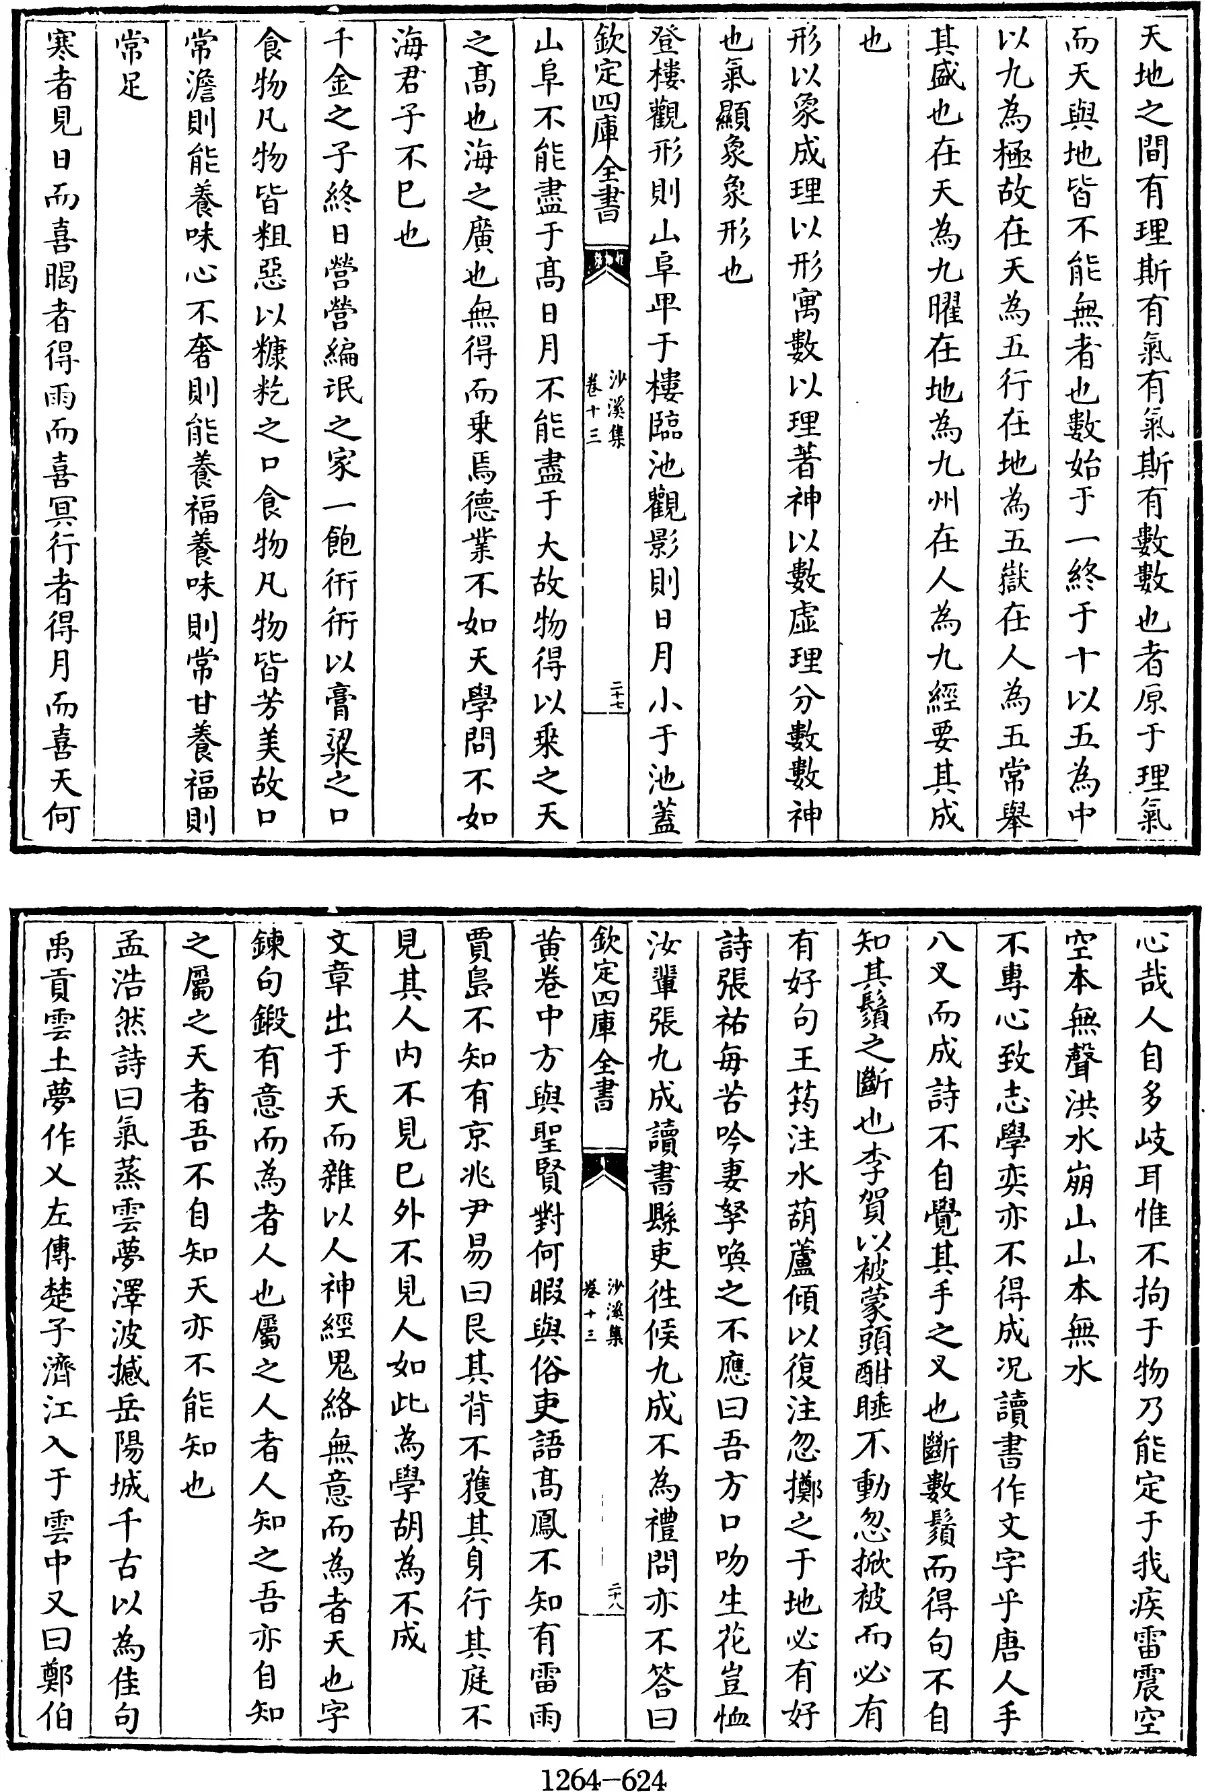 天地之間有理斯有氣有氣斯有數數也者原于理氣
而天與地皆不能無者也數始于一終于十以五為中
以九為極故在天為五行在地為五嶽在人為五常舉
其盛也在天為九曜在地為九州在人為九經要其成
也
形以象成理以形寓數以理著神以數虛理分數數神
也氣顯象象形也
登樓觀形則山阜卑于樓臨池觀影則日月小于池蓋
欽定四庫全書
沙溪集
卷十三
二十七
山阜不能盡于髙日月不能盡于大故物得以乗之天
之髙也海之廣也無得而乗焉德業不如天學問不如
海君子不已也
千金之子終日營營編氓之家一飽衎衎以膏粱之口
食物凡物皆粗惡以糠籺之口食物凡物皆芳美故口
常澹則能養味心不奢則能養福養味則常甘養福則
常足
寒者見日而喜暍者得雨而喜冥行者得月而喜天何
心哉人自多岐耳惟不拘于物乃能定于我疾雷震空
空本無聲洪水崩山山本無水
不専心致志學奕亦不得成况讀書作文字乎唐人手
八叉而成詩不自覺其手之叉也斷數鬚而得句不自
知其鬚之斷也李賀以被蒙頭酣睡不動忽掀被而必有
有好句王筠注水葫蘆傾以復注忽擲之于地必有好
詩張祐每苦吟妻孥喚之不應曰吾方口吻生花豈恤
汝輩張九成讀書縣吏徃候九成不為禮問亦不答曰
欽定四庫全書
沙溪集
卷十三
二十八
黄卷中方與聖賢對何暇與俗吏語髙鳳不知有雷雨
賈島不知有京兆尹易曰艮其背不獲其身行其庭不
見其人内不見已外不見人如此為學胡為不成
文章出于天而雜以人神經鬼絡無意而為者天也字
鍊句鍛有意而為者人也屬之人者人知之吾亦自知
之屬之天者吾不自知天亦不能知也
孟浩然詩曰氣蒸雲夢澤波撼岳陽城千古以為佳句
禹貢雲土夢作乂左傳楚子濟江入于雲中又曰鄭伯
1264-624